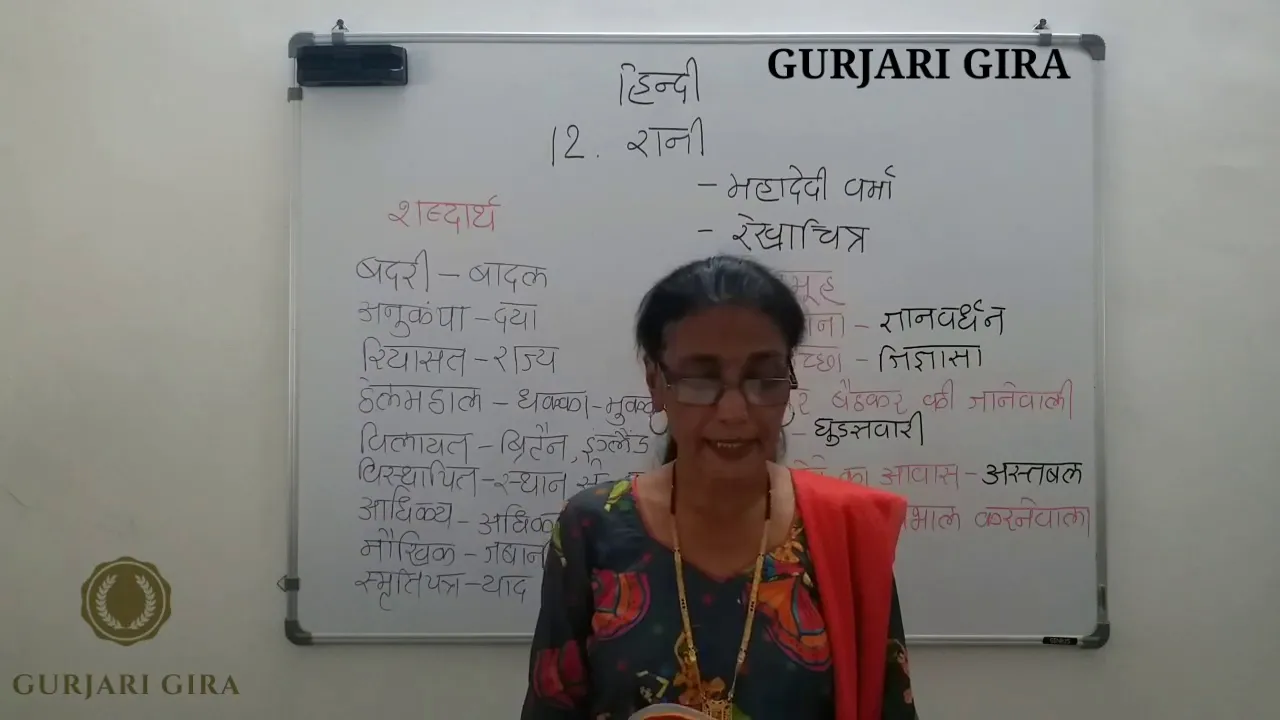 GURJARI GIRA
हिन्दी
12. रानी
- महादेवी वर्मा
- रेखाचित्र
शब्दार्थ
बदरी - बादल
अनुकंपा - दया
रियासत - राज्य
ठेलमठाल - धक्का-मुक्
विलायत - ब्रिटैन, इंग्लैंड
विस्थापित - स्थान से
आधिक्य - अधिक
मौखिक - जबानी
स्मृतिपत्र - याद
मूह
ाना - ज्ञानवर्धन
च्छा - जिज्ञासा
र बैठकर की जानेवाली
- घुडसवारी
का आवास - अस्तबल
भाल करनेवाला
GURJARI GIRA